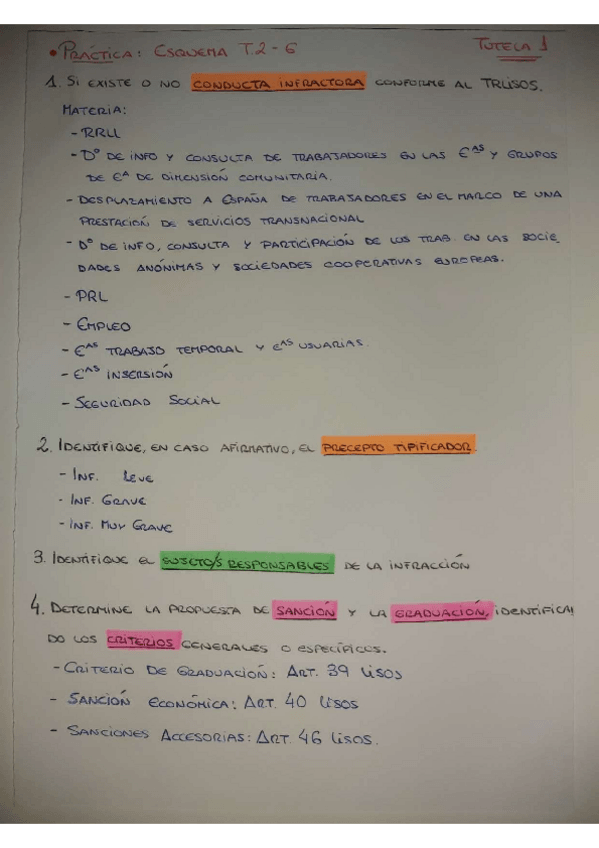 • PRÁCTICA: ESQUEMA T.2-6
TUTELA 1
1. SI EXISTE O NO CONDUCTA INFRACTORA CONFORME AL TRLISOS.
MATERIA:
- RRLL
- Dº DE INFO Y CONSULTA DE TRABAJADORES EN LAS Eᴬˢ Y GRUPOS
DE Eᴬ DE DIMENSIÓN COMUNITARIA.
- DESPLAZAMIENTO A ESPAÑA DE TRABAJADORES EN EL MARCO DE UNA
PRESTACIÓN DE SERVICIOS TRANSNACIONAL
- Dº DE INFO, CONSULTA Y PARTICIPACIÓN DE LOS TRAB. EN LAS SOCIE
DADES ANÓNIMAS Y SOCIEDADES COOPERATIVAS EUROPEAS.
- PRL
- EMPLEO
- Eᴬˢ TRABAJO TEMPORAL Y Eᴬˢ USUARIAS.
- Eᴬˢ INSERSIÓN
- SEGURIDAD SOCIAL
2. IDENTIFIQUE, EN CASO AFIRMATIVO, EL PRECEPTO TIPIFICADOR
- INF. LEVE
- INF. GRAVE
- INF. MUY GRAVE
3. IDENTIFIQUE EL SUJETO/S RESPONSABLES DE LA INFRACCIÓN
4. DETERMINE LA PROPUESTA DE SANCIÓN Y LA GRADUACIÓN, IDENTIFICA
DO LOS CRITERIOS GENERALES O ESPECÍFICOS.
- CRITERIO DE GRADUACIÓN: ART. 39 LISOS
- SANCIÓN ECONÓMICA: ART. 40 LISOS
- SANCIONES ACCESORIAS: ART. 46 LISOS.